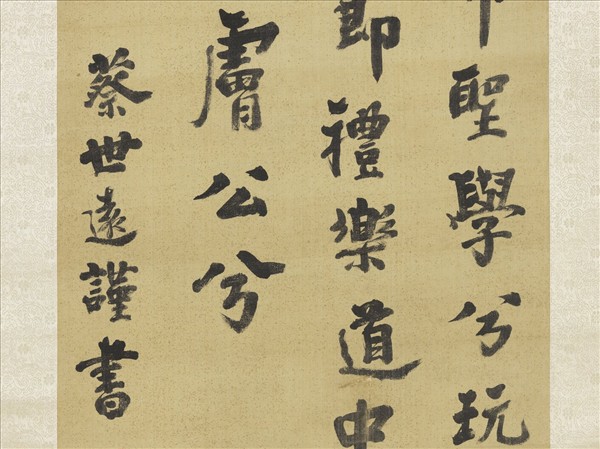 聖學兮玩
即禮樂道中
膚公兮
蔡世遠謹書